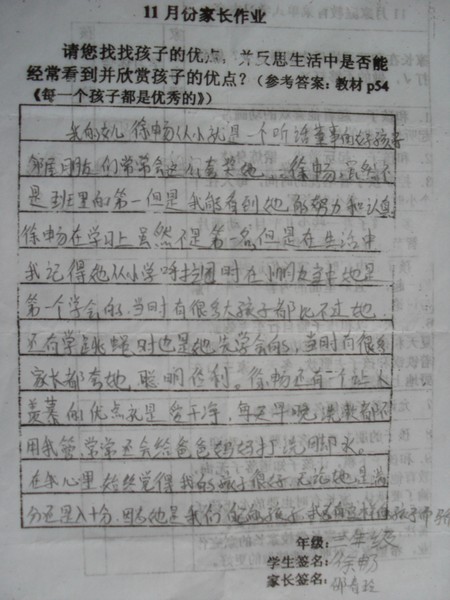 11月份家长作业
请您找找孩子的优点,并反思生活中是否能
经常看到并欣赏孩子的优点?(参考答案:教材p54
《每一个孩子都是优秀的》)
我的女儿徐畅从小就是一个听话董事的好孩子
邻居朋友们常常会这么夸奖她。徐畅虽然不
是班里的第一但是我能看到她的努力和认真
徐畅在学习上虽然不是第一名但是在生活中
我记得她从小学呼拉圈时在小朋友当中她是
第一个学会的,当时有很多大孩子都比不过她
还有学跳绳时也是她先学会的,当时有很多
家长都夸她,聪明伶利。徐畅还有一个让人
羡慕的优点就是爱干净,每天早晚洗漱都不
用我管,常常还会给爸爸妈妈打洗脚水。
在我心里始终觉得我的孩子很好无论她是满
分还是八十分,因为她是我们的孩子,我
年级:
学生签名:徐畅
家长签名: